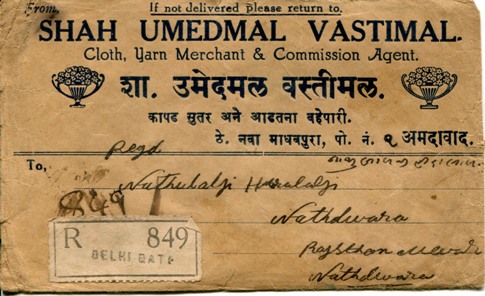 From,
If not delivered please return to,
SHAH UMEDMAL VASTIMAL.
Cloth, Yarn Merchant & Commission Agent.
शा. उमेदमल वस्तीमल.
कापड सुतर अने आढतना वहेपारी.
ठे. नवा माधवपुरा, पो. नं. ९ अमदावाद.
Regd
To,
Nathulalji
849
Nathdwara
R 849
DELHI GATE
Rajsthan Mewar
Nathdwara